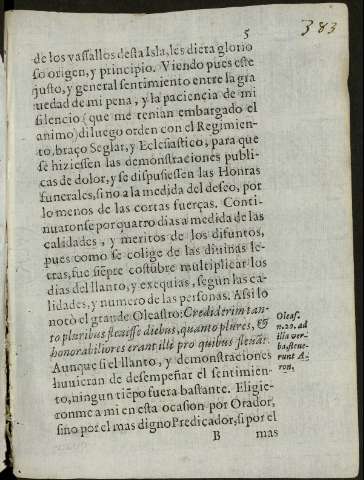 5
383
de los vassallos desta Isla, les dieta glorio
so origen, y principio. Viendo pues este
justo, y general sentimiento entre la gra
uedad de mi pena, y la paciencia de mi
silencio (que me tenian embargado el
animo) di luego orden con el Regimien-
to, braço Seglar, y Eclesiastico; para que
se hiziessen las demonstraciones publi-
cas de dolor, y se dispusiessen las Honras
funerales, si no a la medida del deseo, por
lo menos de las cortas fuerças. Conti-
nuaronse por quatro dias a medida de las
calidades, y meritos de los difuntos,
pues como se colige de las diuinas le-
tras, fue siẽpre costũbre multiplicar los
dias del llanto, y exequias, segun las ca-
lidades, y numero de las personas. Assi lo
notò el grande Oleastro: Crediderim tan-
to pluribus fleuisse diebus, quanto plures, &
honorabiliores erant illi pro quibus fleuãt.
Aunque si el llanto, y demonstraciones
huuieran de desempeñar el sentimien-
to, ningun tiẽpo fuera bastante. Eligie-
ronme a mi en esta ocasion por Orador,
sino por el mas digno Predicador, si por el
B mas
Oleas.
n. 20. ad
illa ver-
ba, fleue-
runt A-
ron,